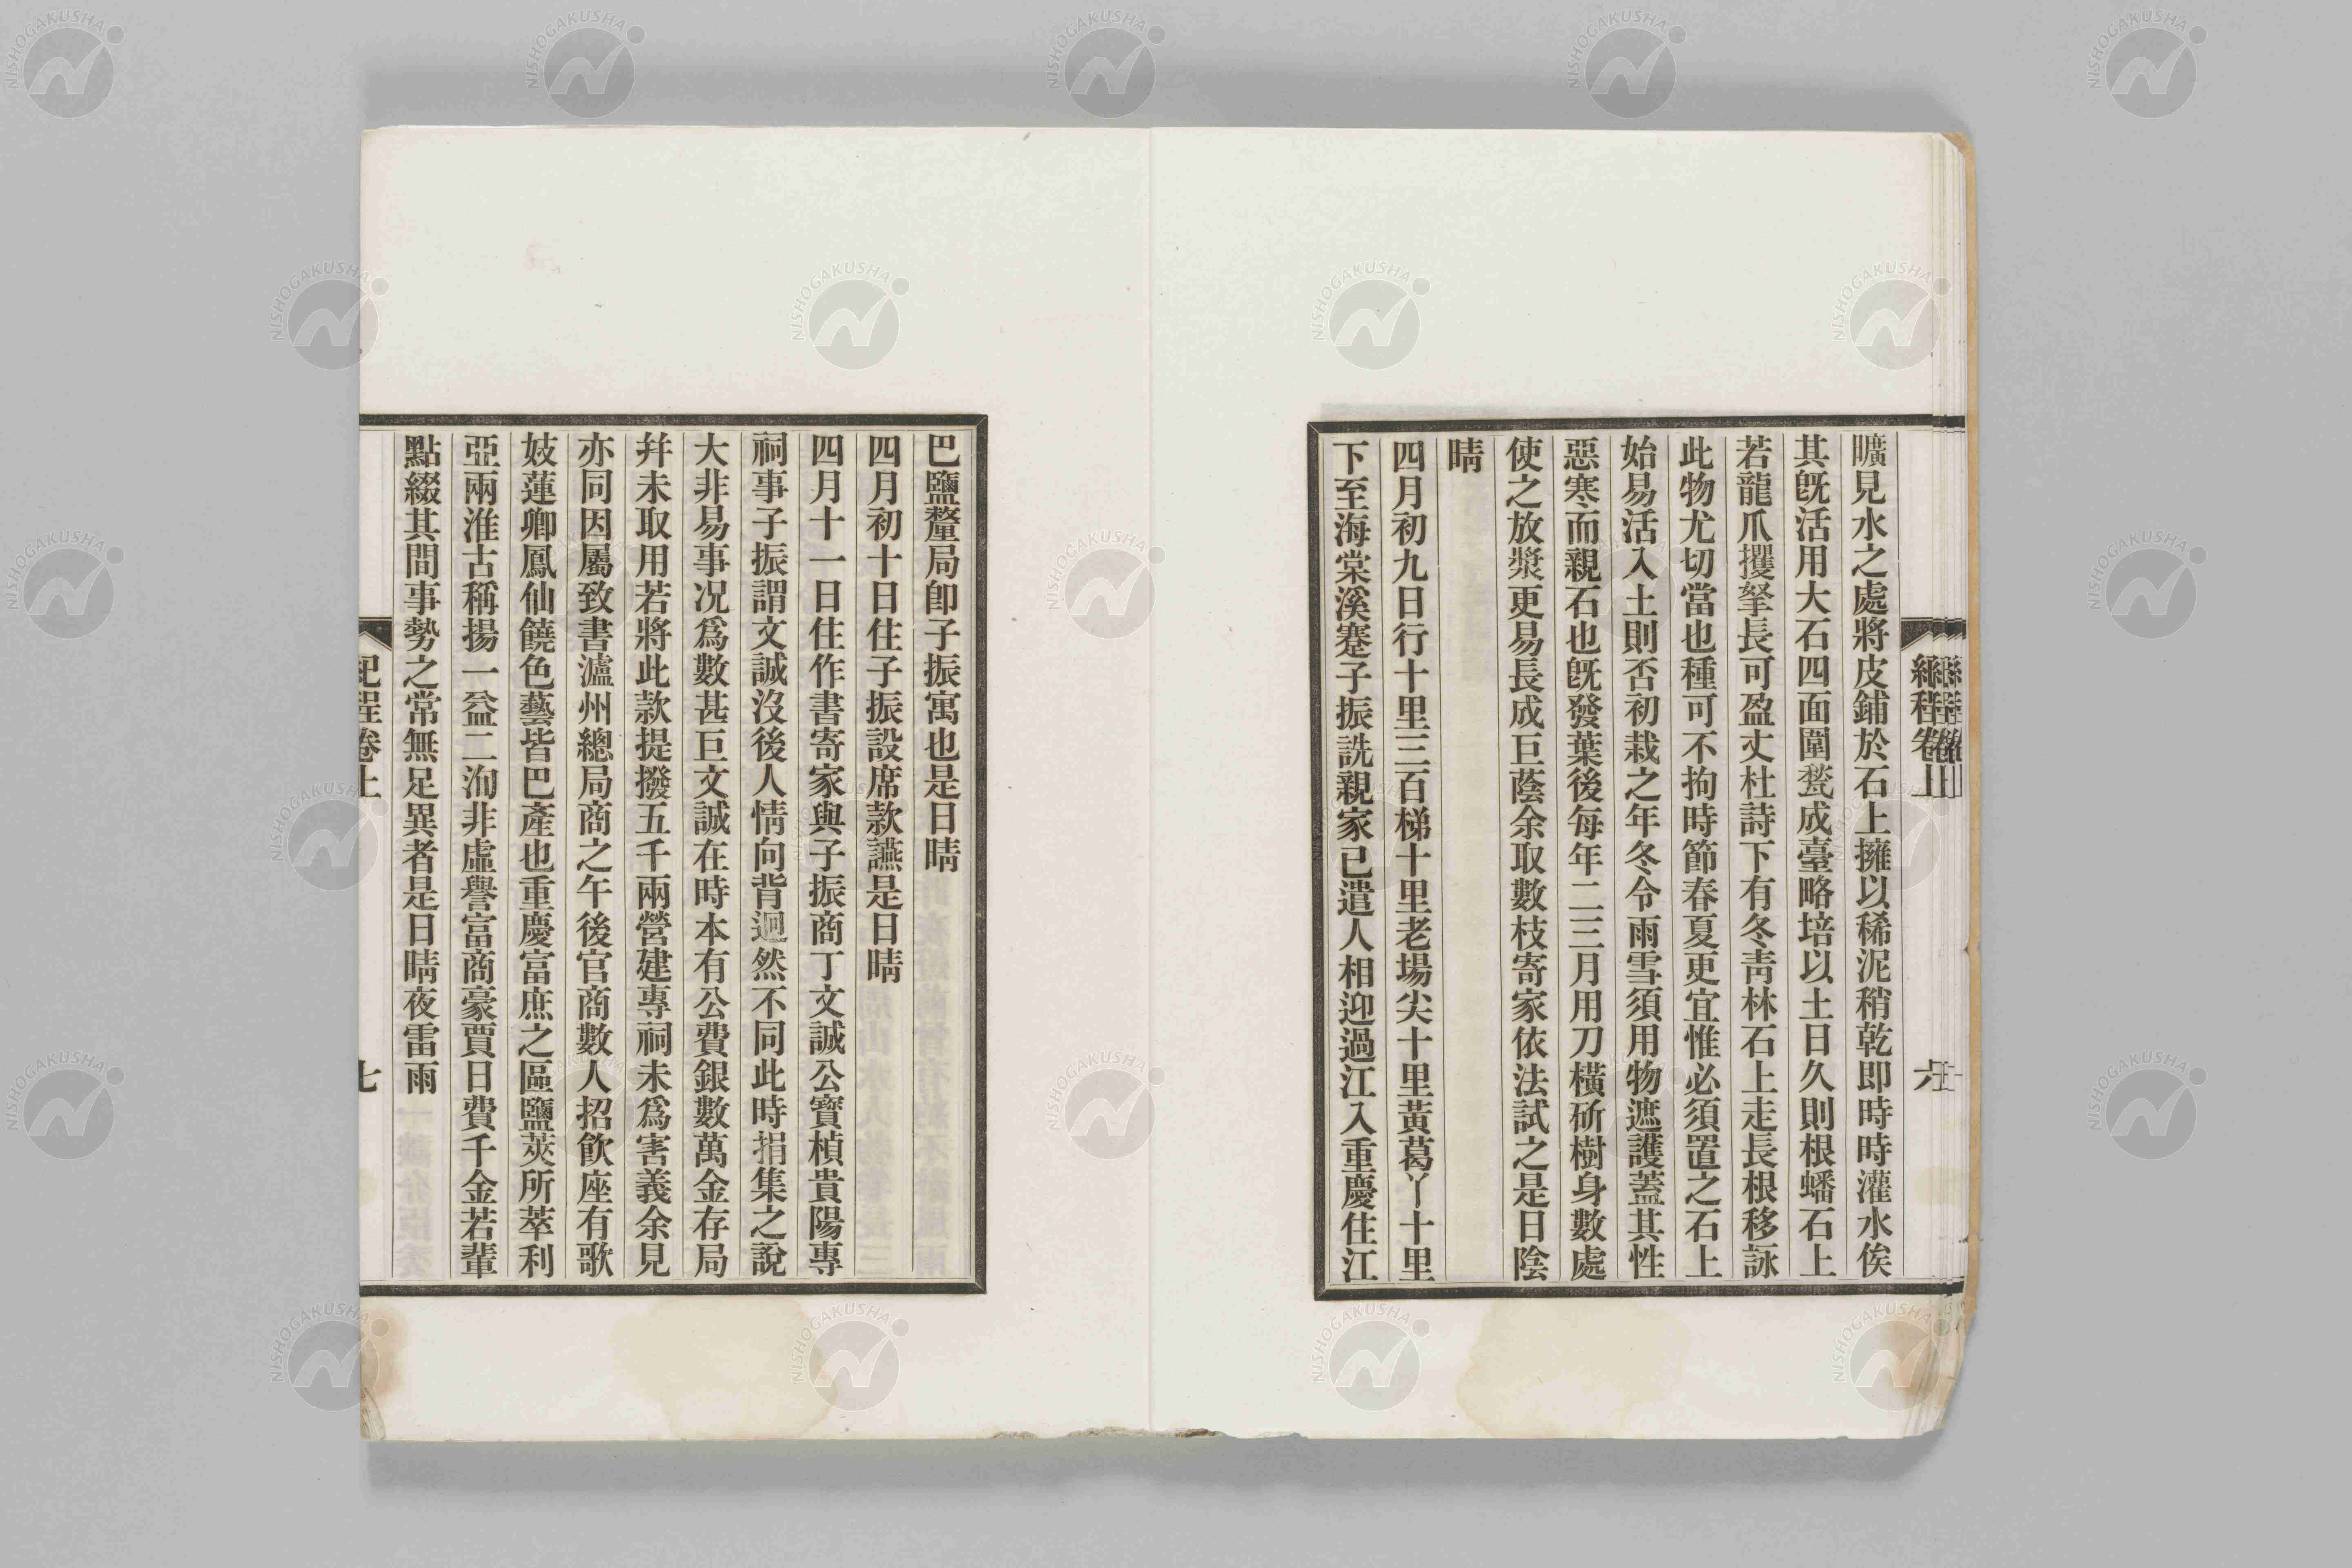 曠見水之處將皮鋪於石上擁以稀泥稍乾即時時灌水俟
其旣活用大石四面圍甃成臺略培以土日久則根蟠石上
若龍爪攫拏長可盈丈杜詩下有冬靑林石上走長根移詠
此物尤切當也種可不拘時節春夏更宜惟必須置之石上
始易活入土則否初栽之年冬令雨雪須用物遮護蓋其性
惡寒而親石也旣發葉後每年二三月用刀橫斫樹身數處
使之放漿更易長成巨蔭余取數枝寄家依法試之是日陰
晴
四月初九日行十里三百梯十里老場尖十里黃葛丫十里
下至海棠溪蹇子振詵親家已遣人相迎過江入重慶住江
紀程卷上
六
巴鹽釐局卽子振寓也是日晴
四月初十日住子振設席款讌是日晴
四月十一日住作書寄家與子振商丁文誠公寶楨貴陽專
祠事子振謂文誠沒後人情向背迥然不同此時捐集之說
大非易事况爲數甚巨文誠在時本有公費銀數萬金存局
幷未取用若將此款提撥五千兩營建專祠未爲害義余見
亦同因屬致書瀘州總局商之午後官商數人招飮座有歌
妓蓮卿鳳仙饒色藝皆巴產也重慶富庶之區鹽莢所萃利
亞兩淮古稱揚一益二洵非虛譽富商豪賈日費千金若輩
點綴其間事勢之常無足異者是日晴夜雷雨
紀程卷上
七
NISHOGAKUSHA